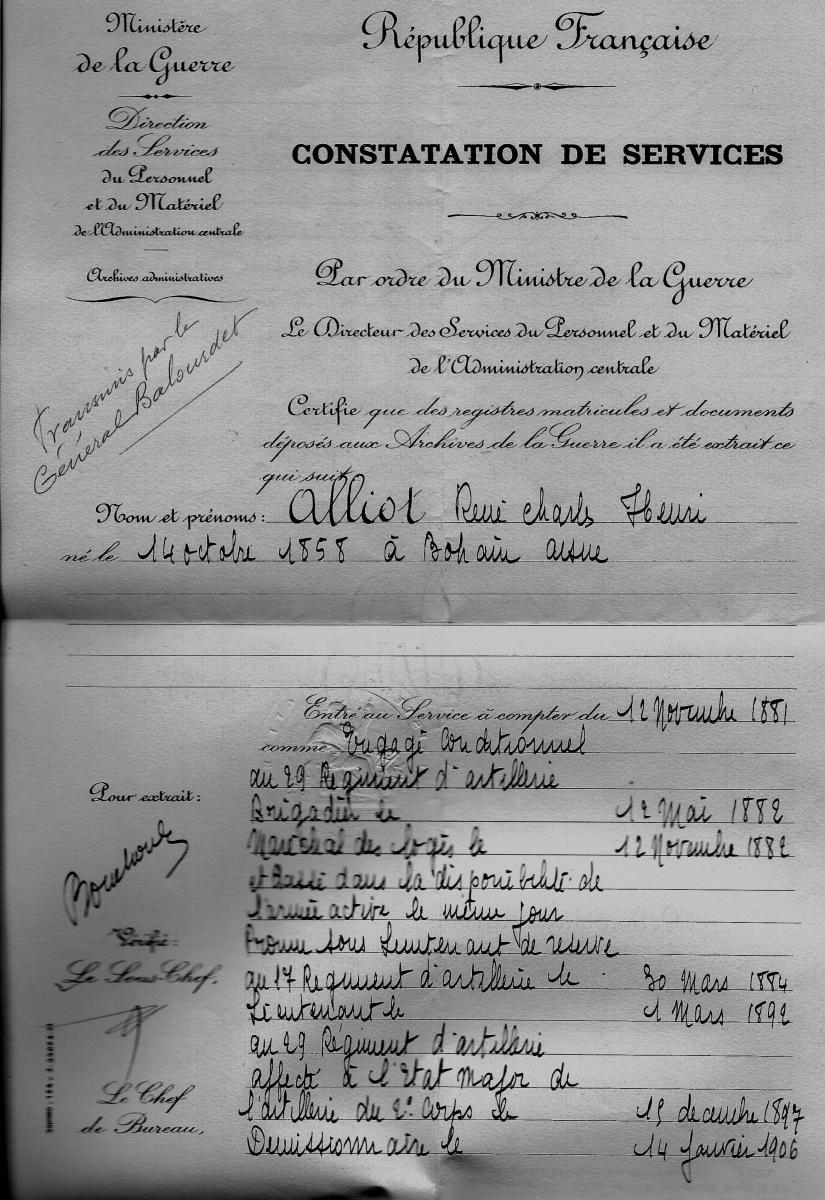 Ministère
de la Guerre
Direction
des Services
du Personnel
et du Matériel
de l'Administration centrale
Archives administratives
Transmis par le
Général Balourdet
République Française
CONSTATATION DE SERVICES
Par ordre du Ministre de la Guerre
Le Directeur des Services du Personnel et du Matériel
de l'Administration centrale
Certifie que des registres matricules et documents
déposés aux Archives de la Guerre il a été extrait ce
qui suit
Nom et prénoms: Alliot René Charles Henri
né le 14 octobre 1858 à Bohain Aisne
Entré au Service à compter du 12 Novembre 1881
comme Engagé Conditionnel
au 29 Regiment d'artillerie
Brigadier le 12 Mai 1882
Maréchal des logis le 12 Novembre 1882
et Passé dans la disponibilité de
l'armée active le même jour
Promu sous lieutenant de reserve
au 17 Regiment d'artillerie le 30 Mars 1884
Lieutenant le 1 Mars 1892
au 29 Régiment d'artillerie
affecté à l'Etat Major de
l'artillerie du 2e Corps le 15 decembre 1897
Demissionnaire le 14 Janvier 1906
Pour extrait:
Vérifié:
Le Sous-Chef,
Le Chef
de Bureau,